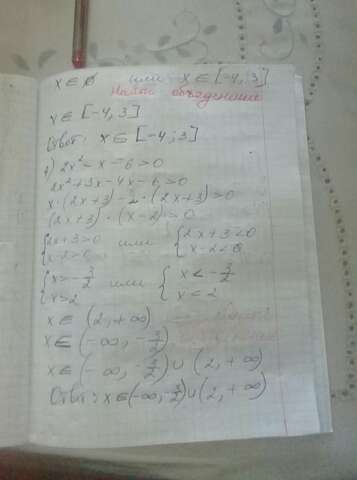 x ∈ ∅ или x ∈ [-4; 3]
Найти объединение
x ∈ [-4, 3]
Ответ: x ∈ [-4; 3]
2x² - x - 6 > 0
2x² + 3x - 4x - 6 > 0
x · (2x + 3) - 2 · (2x + 3) > 0
(2x + 3) · (x - 2) > 0
{2x + 3 > 0 или {2x + 3 < 0
{x - 2 > 0 {x - 2 < 0
{x > -3/2 или {x < -3/2
{x > 2 {x < 2
x ∈ (2, +∞)
x ∈ (-∞, -3/2)
x ∈ (-∞, -3/2) ∪ (2, +∞)
Ответ: x ∈ (-∞, -3/2) ∪ (2, +∞)